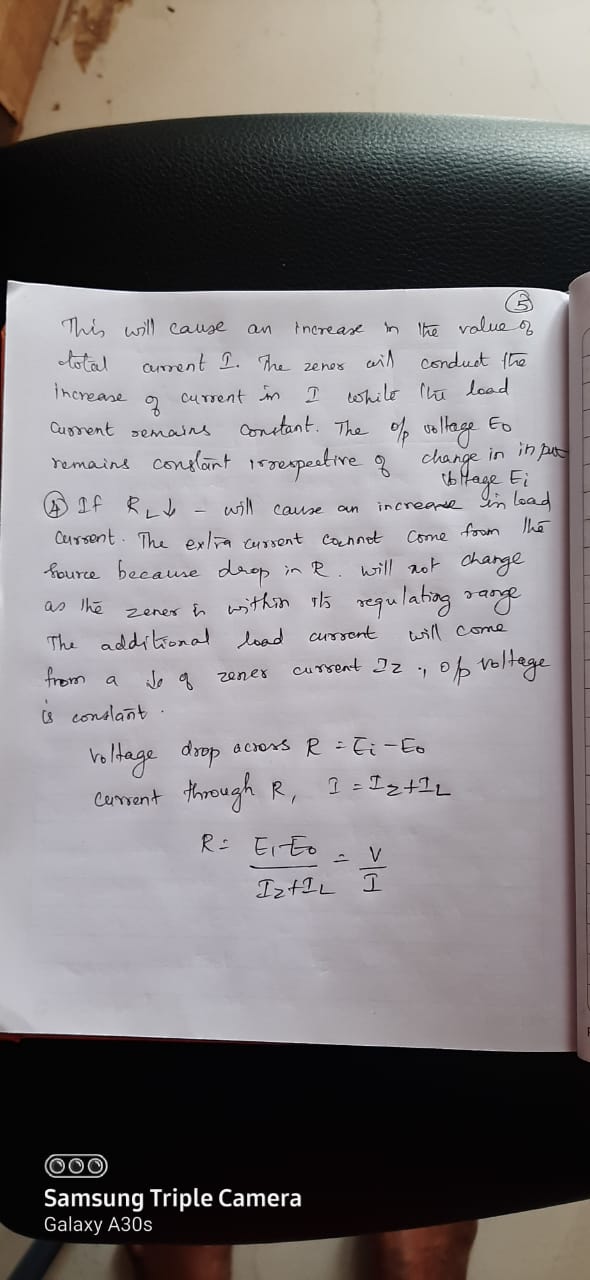 5
This will cause an increase in the value of
total current I. The zener will conduct the
increase of current in I while the load
current remains constant. The o/p voltage Eo
remains constant irrespective of change in input
voltage Ei
④ If RL↓ - will cause an increase in load
current. The extra current cannot come from the
source because drop in R. will not change
as the zener is within its regulating range
The additional load current will come
from a ↓e of zener current Iz ., o/p voltage
is constant.
Voltage drop across R = Ei - Eo
current through R, I = Iz+IL
R = Ei-Eo / Iz+IL = V / I
Samsung Triple Camera
Galaxy A30s